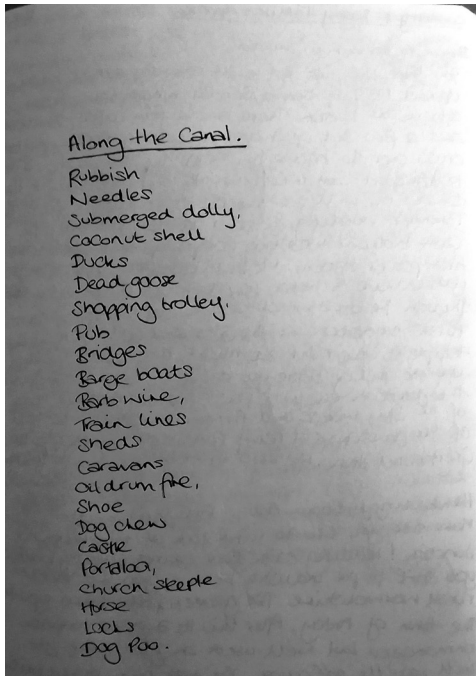 Along the Canal.
Rubbish
Needles
Submerged dolly,
Coconut shell
Ducks
Dead goose
Shopping trolley,
Pub
Bridges
Barge boats
Barb wire,
Train lines
Sheds
Caravans
Oil drum fire,
Shoe
Dog chew
Castle
Portaloo,
Church steeple
Horse
Locks
Dog Poo.